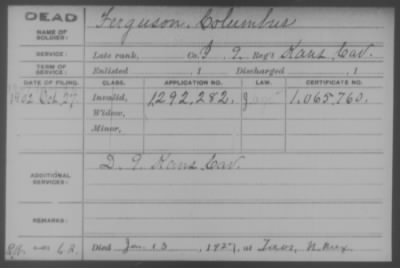 DEAD
NAME OF SOLDIER:
Ferguson, Columbus
SERVICE:
Late rank, Co. I 9 Reg't Kans Cav.
TERM OF SERVICE:
Enlisted , 1 Discharged , 1
DATE OF FILING. CLASS. APPLICATION NO. LAW. CERTIFICATE NO.
1902 Oct. 27. Invalid, 1,292,282. 1,065,760.
Widow,
Minor,
ADDITIONAL SERVICES:
D. 9. Kans Cav.
REMARKS:
Died Jan. 13, 1927, at Taos, N. Mex.